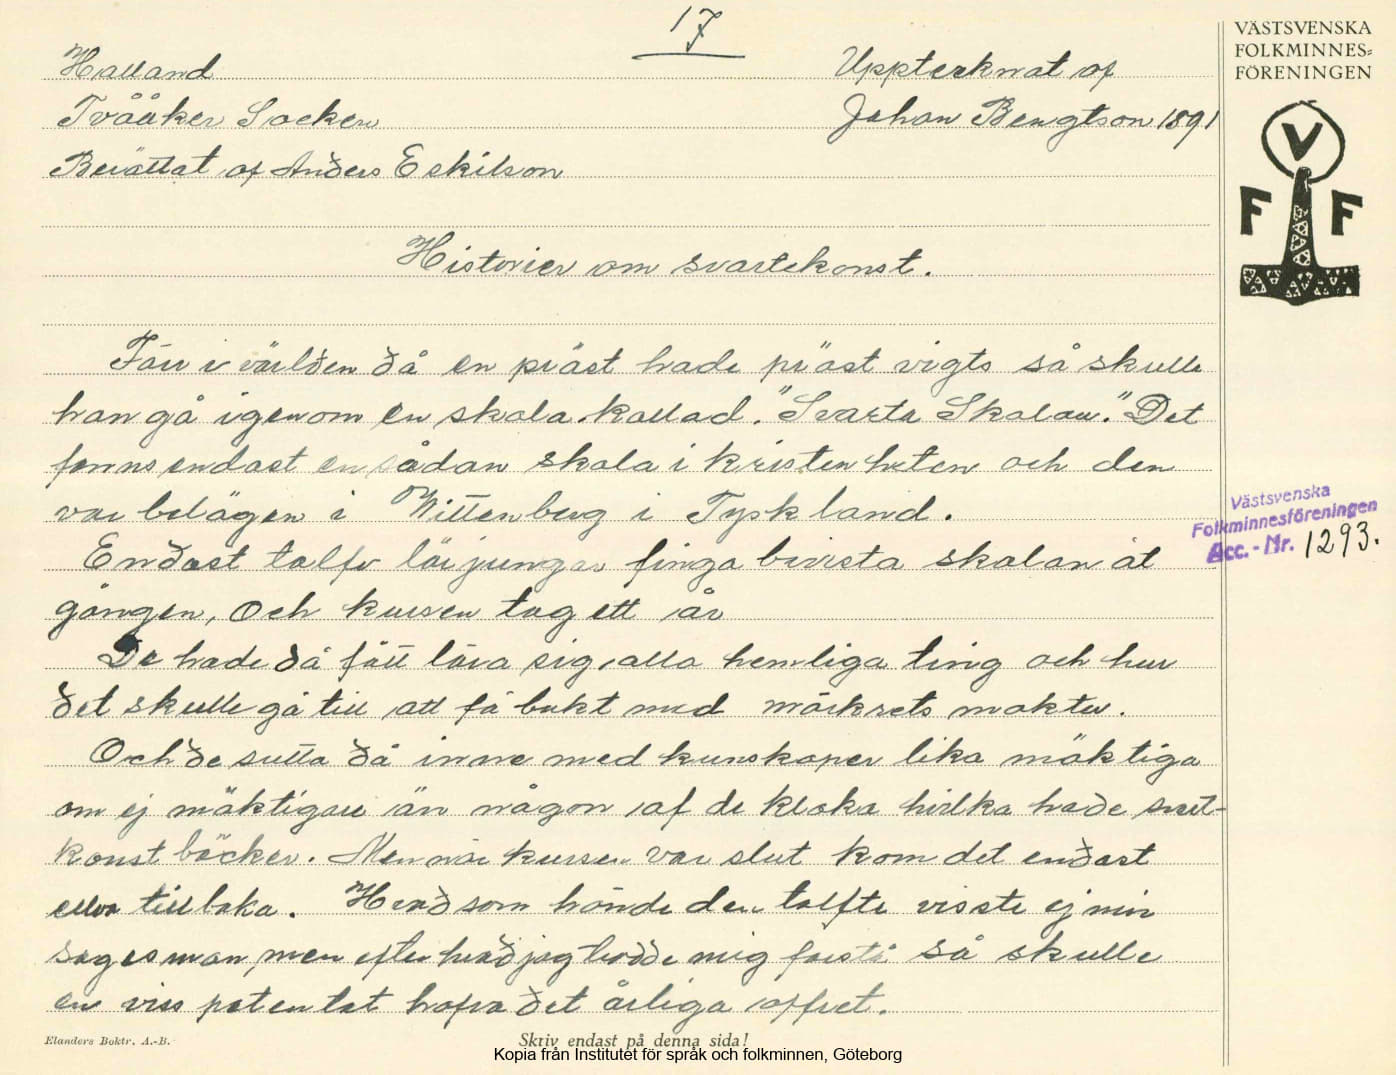 17
Halland
Uppteeknat af
Tvååker Socken
Johan Bengtson 1891
Berättat af Anders Eskilson
Historier om svartekonst.
Förr i världen då en präst hade präst vigts så skulle
han gå igenom en skola kallad. "Svarta Skolan." Det
fanns endast en sådan skola i kristenheten och den
var belägen i Wittenberg i Tyskland.
Endast tolfv lärjungar finga bevista skolan åt
gången, och kursen tog ett år
De hade då fått lära sig alla hemliga ting och hur
det skulle gå till att få bukt med mörkrets makter.
Och de sutta då inne med kunskaper lika mäktiga
om ej mäktigare än någon af de kloka hvilka hade svart-
konst böcker. Men när kursen var slut kom det endast
ellva tillbaka. Hvad som hände den tolfte visste ej min
sagesman, men efter hvad jag trodde mig förstå så skulle
en viss potentat hafva det årliga offret.
VÄSTSVENSKA
FOLKMINNES=
FÖRENINGEN
V
F F
Västsvenska
Folkminnesföreningen
Acc.-Nr. 1293.
Elanders Boktr. A.-B.
Skriv endast på denna sida!
Kopia från Institutet för språk och folkminnen, Göteborg